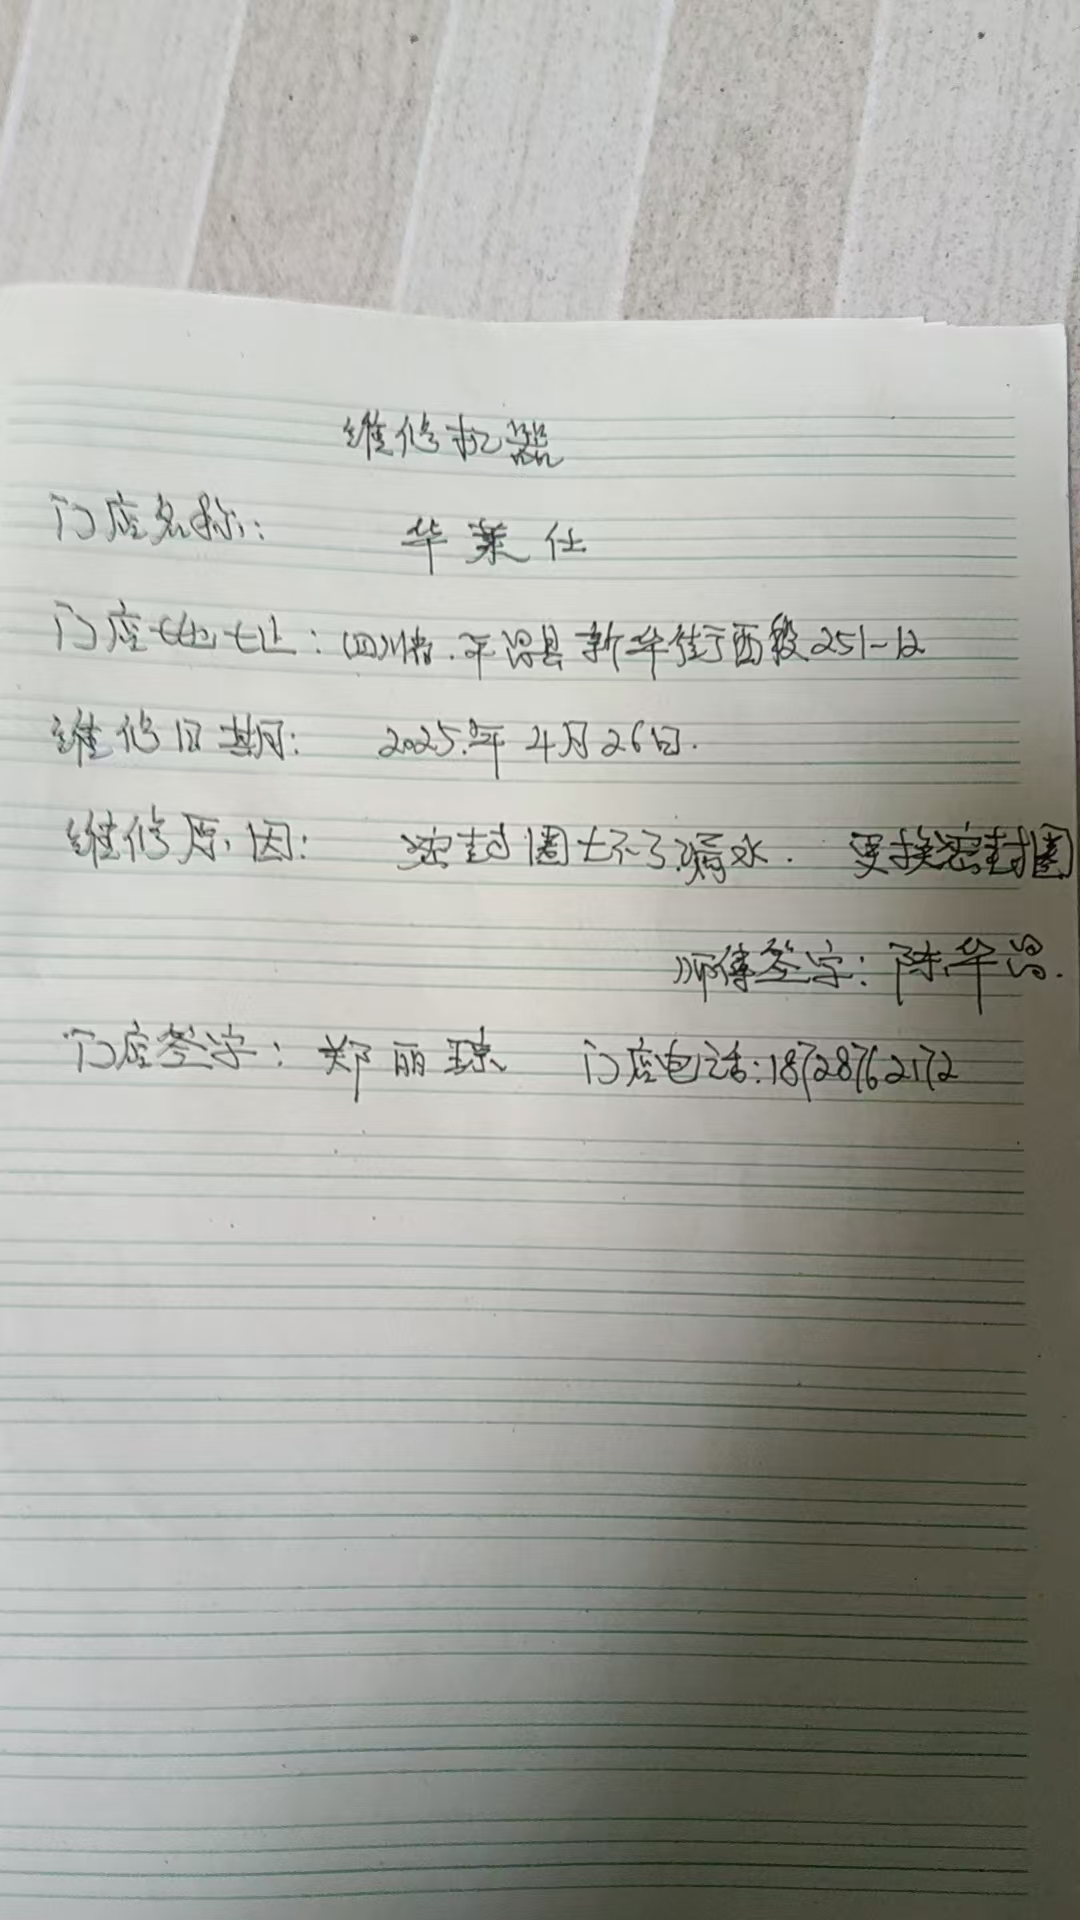 维修机器
门店名称: 华莱仕
门店地址: 四川省.平昌县新华街西段251-12
维修日期: 2025.年4月26日.
维修原因: 密封圈坏了漏水. 更换密封圈
师傅签字: 陈华昌.
门店签字: 郑丽琼 门店电话:18728762172